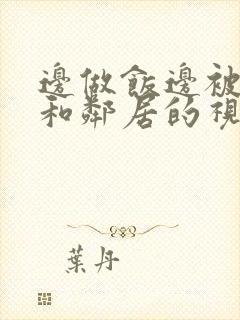 邊做飯邊被
和鄰居的視
葉丹